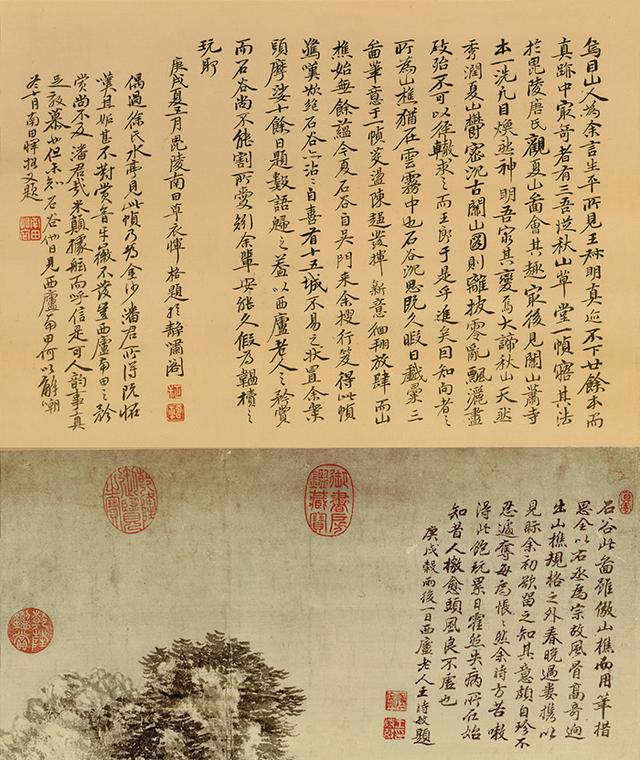 烏目山人為余言生平所見王叔明真迹不下廿餘本而
真跡中最奇者有三吾從秋山草堂一幀寤其法
於毘陵唐氏觀夏山圖會其趣最後見關山蕭寺
本一洗凡目煥然神明吾窮其變焉大諦秋山天然
秀潤夏山鬱密沉古關山圖則離披零亂飄灑盡
致殆不可以徑轍求之而王郎于是乎進矣因知向者之
所為山樵猶在雲霧中也石谷沉思既久暇日戲彙三
圖筆意于一幀滌盪陳趨發揮新意徊翔放肆而山
樵始無餘蘊今夏石谷自吳門來余搜行笈得此幀
驚嘆欲絕石谷亦沾沾自喜有十五城不易之狀置余案
頭摩挲十餘日題數語歸之蓋以西廬老人之矜賞
而石谷尚不能割所愛矧余輩安能久假為韞櫝之
玩耶
庚戌夏五月毘陵南田草衣惲格題於靜嘯閣
偶過徐氏水亭見此幀乃為金沙潘君所得既怪
嘆且妬甚不對賞音牙徽不發豈西廬南田之矜
賞尚不及潘君哉米顛據舷而呼信是可人韻事真
足效慕也但未知石谷他日見西廬南田何以解嘲
冬十月南田惲格又題
石谷此圖雖倣山樵而用筆措
思全以右丞為宗故風骨高奇迥
出山樵規格之外春晚過婁攜以
見眎余初欲留之知其意頗自珍不
忍遽奪每為悵悵然余時方苦嗽
得此飽玩累日霍然失病所在始
知昔人檄愈頭風良不虛也
庚戌穀雨後一日西廬老人王時敏題
御書房鑑藏寶
乾隆御覽之寶
乾隆鑑賞